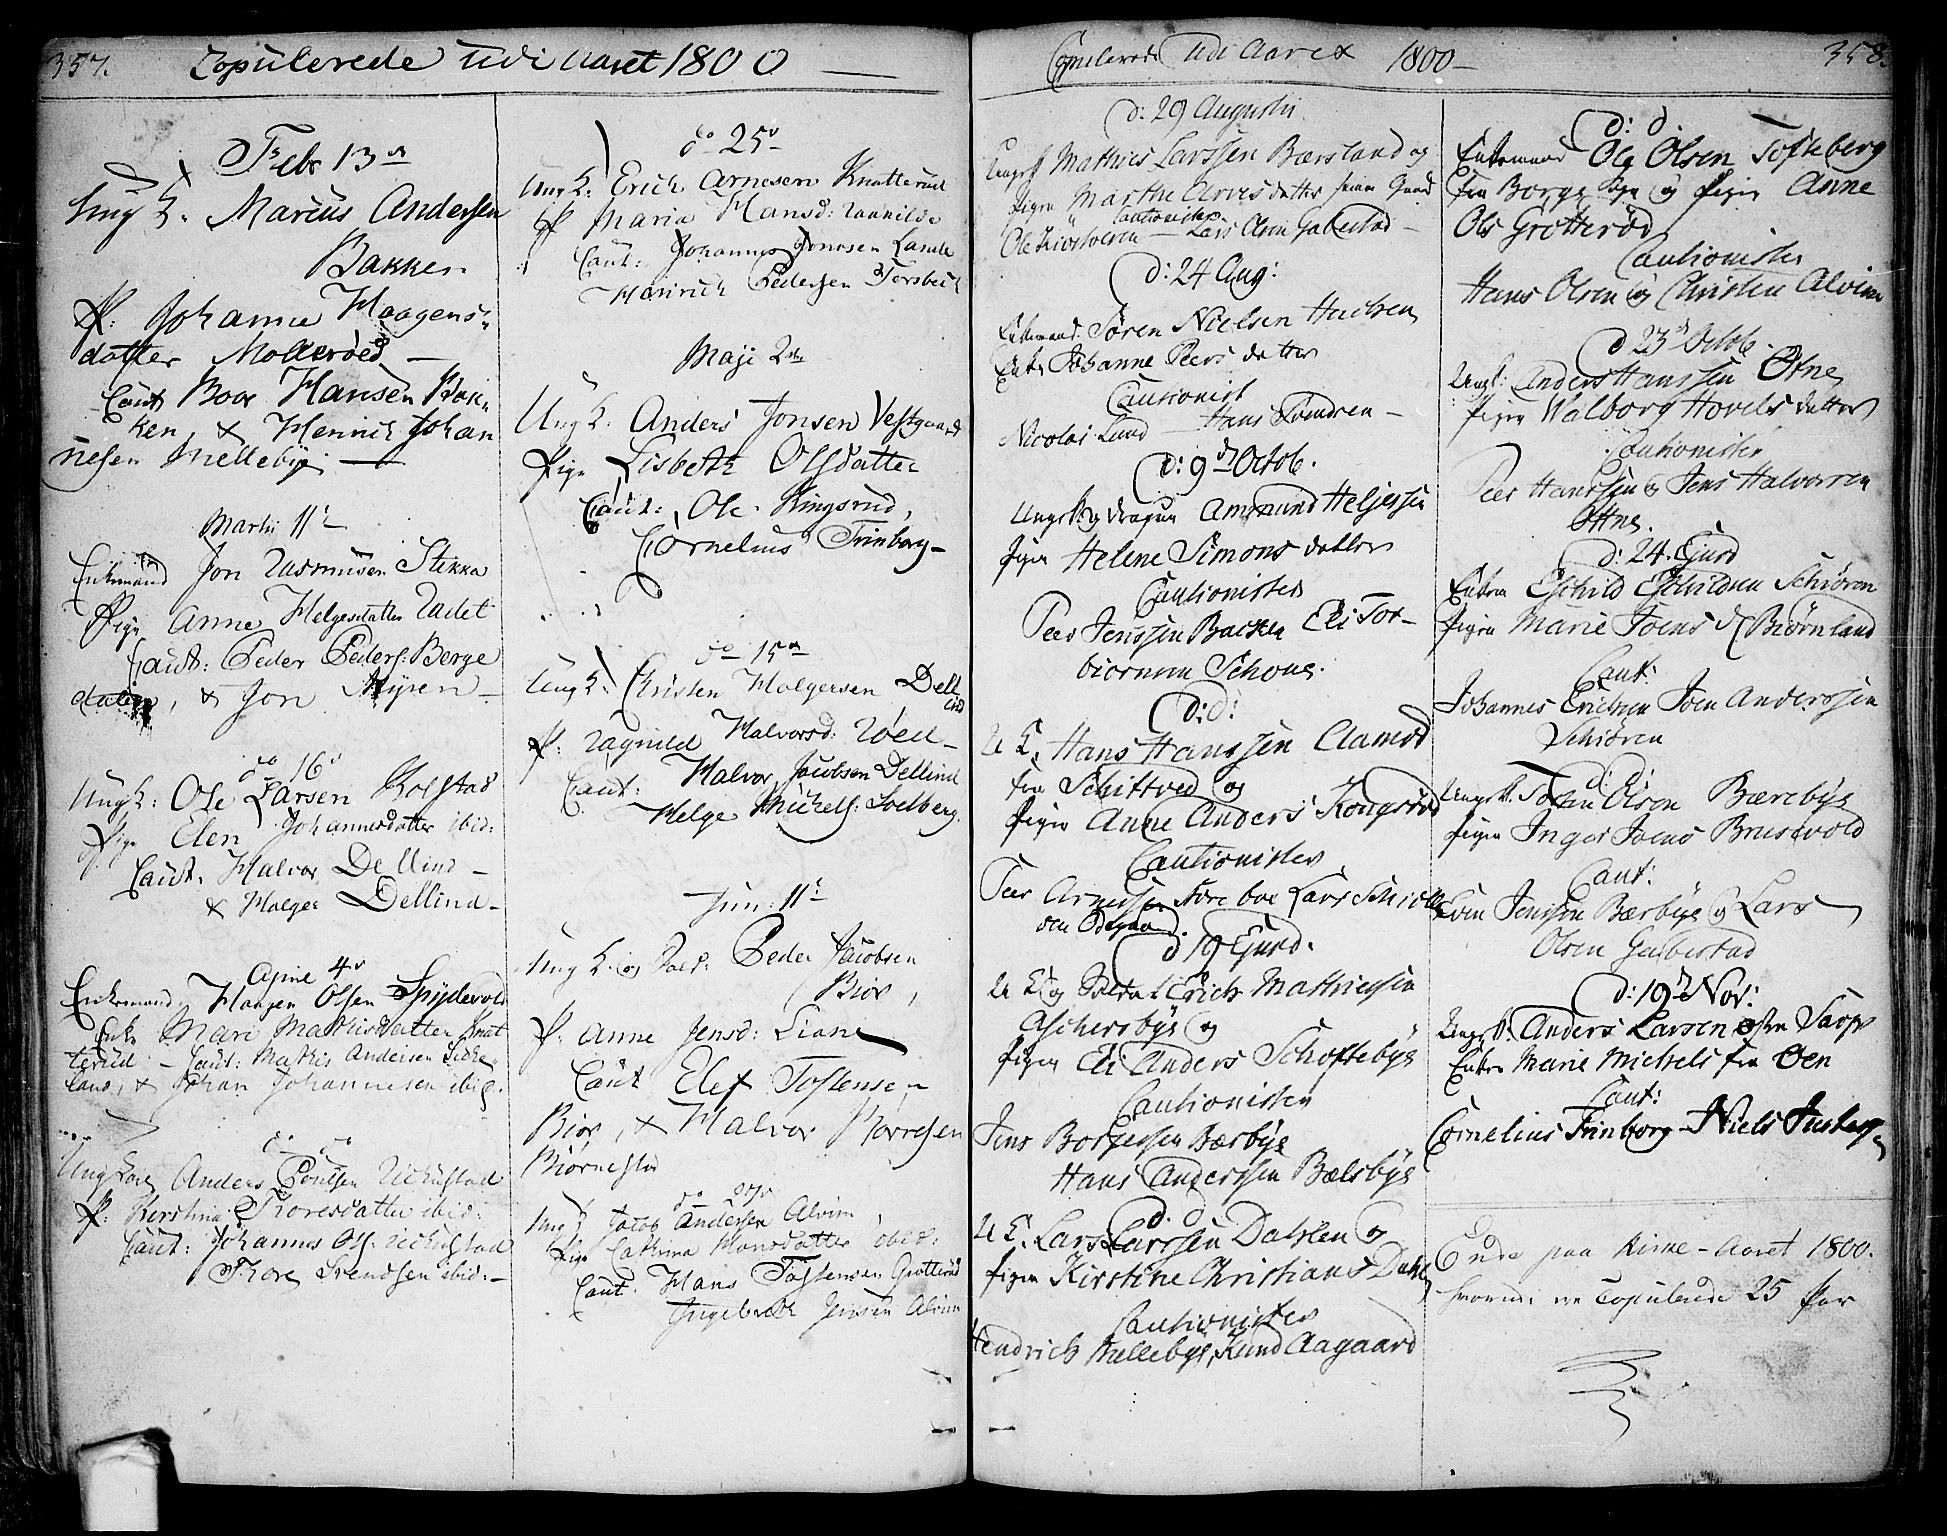 357.
Copulerede udi Aaret 1800
Febr 13
Ung K. Marcus Andersen
Bakken
P: Johanne Haagens
datter Mollerød
Caut Boor Hansen Bak
ken, & Hennich Johan
nesen Mellebÿe
Martii 11
Enkemand Jon Rasmusen Stikka
Pige Anne Helgesdatter Radet
Caut: Peder Peders: Berge
dalen, & Jon Mÿren
do 16
Ung K: Ole Larsen Kolstad
Pige Elen Johannesdatter ibid:
Caut. Halvor Dellind
& Holger Dellind
Aprie 4
Enkemand Haagen Olsen Spÿdevold
Enke Mari Mathisdatter Knat
terud – Caut: Mathis Andersen
land, & Johan Johannesen ibid.
do do
Ung Karl Anders Poulsen
P. Kerstina Thoresdatter ibid:
Caut: Johannes Ols:
Thore Svendsen ibid:
do 25
Ung K: Erich Arnesen Knatterud
P Maria Hansd:
Caut: Johannes Jonesen Lande
Henrich Pedersen Torsbech
Maji 2
Ung K. Anders Jonsen Vestgaard
Pige Lisbeth Olsdatter
Caut: Ole Kingsrud,
Cornelius Trinborg
do 15
Ung K. Christen Holgersen Dell
ind
P: Ragnild Halvorsd: Röed
Caut: Halvor Jacobsen Dellind
Helge Michels: Solberg.
Jun: 11
Ung K. og Sold: Peder Jacobsen
Biör,
P. Anne Jensd: Liane
Caut Elef Tostensen
Biör, & Halvor Börresen
Biörnestad
do 27
Ung K Jacob Andersen Alvim
Pige Cathrina Hansdatter ibid:
Caut. Hans Tostensen Grotterød
Ingebreth Jensen Alvim
Copulerede udi Aaret 1800
358.
d: 29 Augusti
Ungk Mathies Larssen Bærsland og
Pigen Marthe Arnesdatter
Cautionister
Ole Kiostelsen – Lars Olsen Gabestad
d: 24 Aug:
Enkemand Søren Nielsen Huelsen
Enke Johanne Peersdatter
Cautionist
Nicolai Lund – Hans Svendsen
d: 9d Octob.
Ungk og dragun Ammund Heljessen
Pigen Helene Simonsdatter
Cautionister
Peer Jenssen Backen Eli Tor-
biornsen Schoug.
d: d:
U K. Hans Hanssen Aamod
fra Schittved og
Pigen Anne Anders Kongsrød
Cautionister
Peer Arnessen Lars
Odegaard.
d 19 Ejusd.
U K og Soldat Erich Mathiessen
Aschersbÿe og
Pigen Eli Anders Schoftebÿe
Cautionister
Jens Borgessen Bærbÿe
Hans Anderssen Bælsbÿe
d. d
U K. Lars Larssen Dahlen og
Pigen Kirstine Christians Dahl
Cautionister
Hendrich Mellebÿe, Knud Aagaard
d: d.
Enkemand Ole Olsen Tofteberg
fra Borge Sogn og Pigen Anne
Ols Grötteröd
Cautionister
Hans Olsen og Christen Alvim
d 23d Octob.
Ungk: Anders Hanssen Otne
Pigen Walborg Hovelsdatter
Cautionister
Peer Hanssen og Jens Halvorsen
Ottne.
d: 24. Ejusd
Enkem Eschild Eschildsen Schiøren
Pigen Marie Joens d Biørnland
Caut:
Johannes Erichsen Joen Anderssen
Schiøren
d: d:
Ungk. Olsen Bærebÿe
Pigen Inger Joens Brusevold
Caut:
Even Jenssen Bærbÿe og Lars
Olsen Gabestad
d: 19d Nov:
Ungk. Anders Larsen Sarp
Enken Marie Michels fra Oen
Caut:
Cornelius Trinborg – Niels
Ende paa Kirke-Aaret 1800.
hvorudi ere Copulerede 25 Par